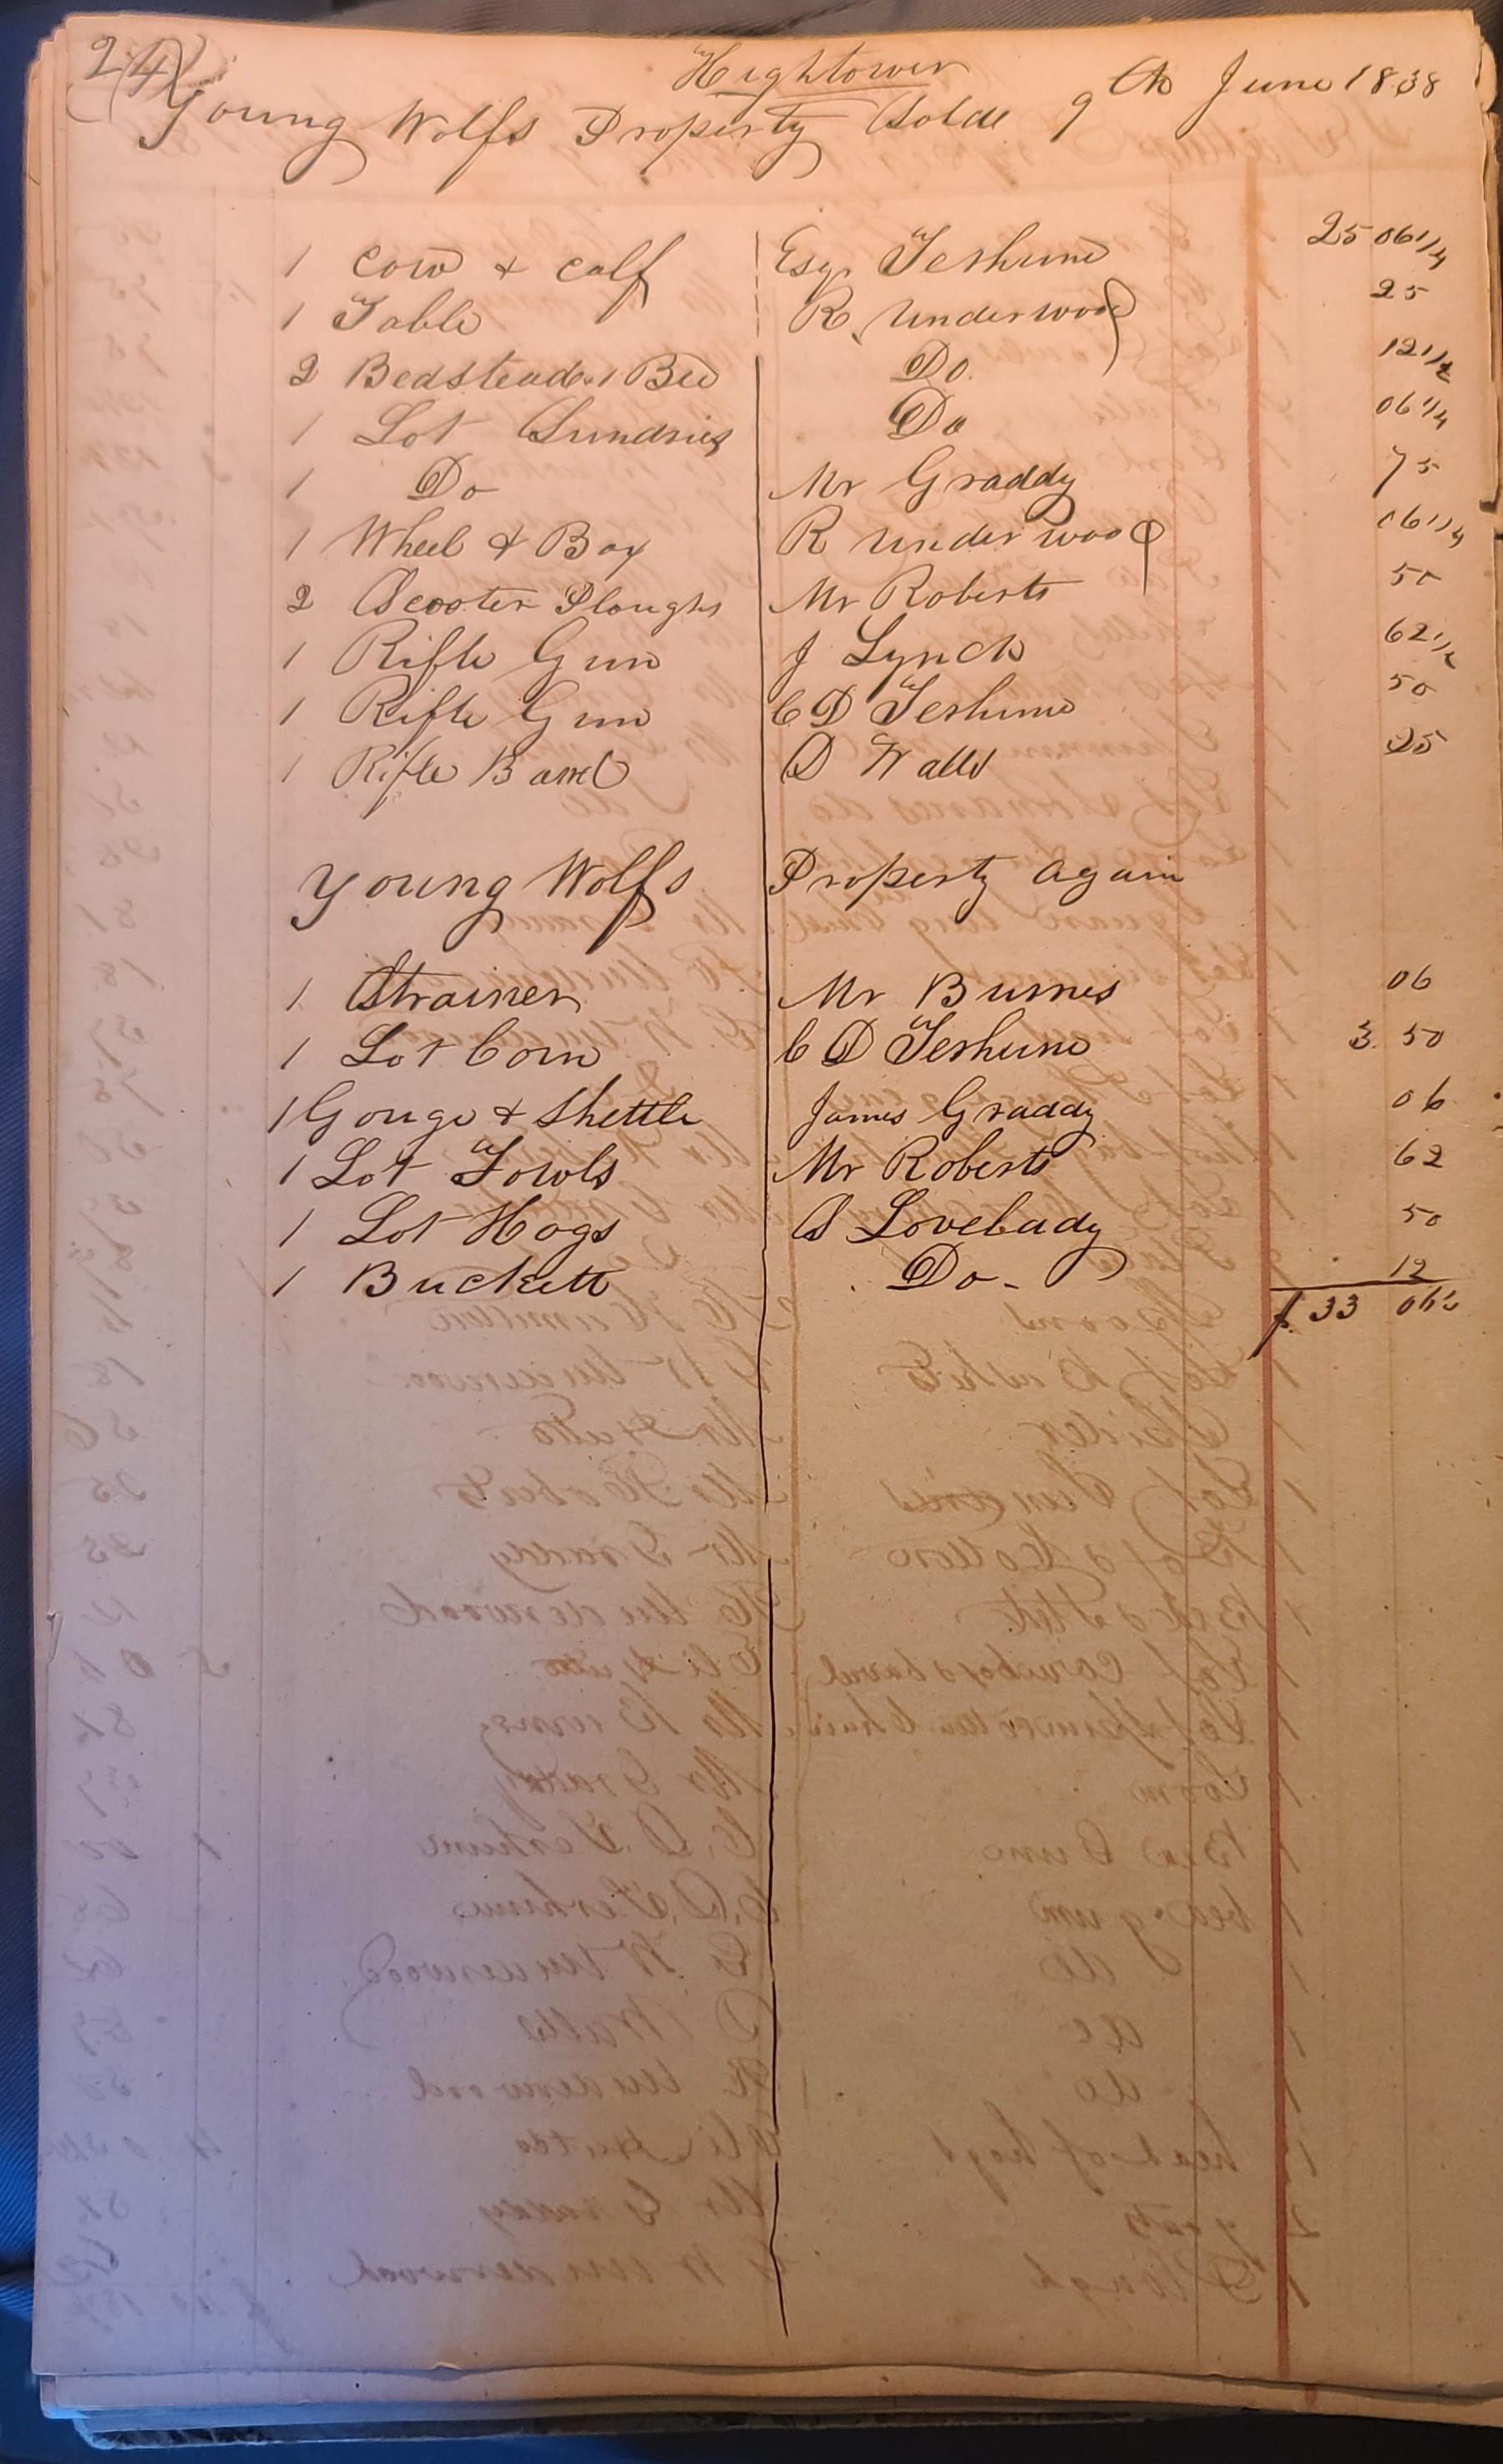 24
Hightower
Young Wolfs Property Solde 9th June 1838
1 Cow & Calf Esqr Terhune 25 06 1/4
1 Table R Underwood 25
2 Bedsteads 1 Bed Do. 12 1/2
1 Lot Sundries Do 06 1/4
1 Do Mr Graddy 75
1 Wheel & Box R Underwood 06 1/4
2 Scooter Ploughs Mr Roberts 50
1 Rifle Gun J Lynch 62 1/2
1 Rifle Gun C D Terhune 50
1 Rifle Barrel D Watts 25
Young Wolfs Property Again
1 Strainer Mr Burnes 06
1 Lot Corn C D Terhune 3. 50
1 Gouge & Shettle James Graddy 06
1 Lot Fowls Mr Roberts 62
1 Lot Hogs S Lovelady 50
1 Buckett Do - 12
$ 33 06